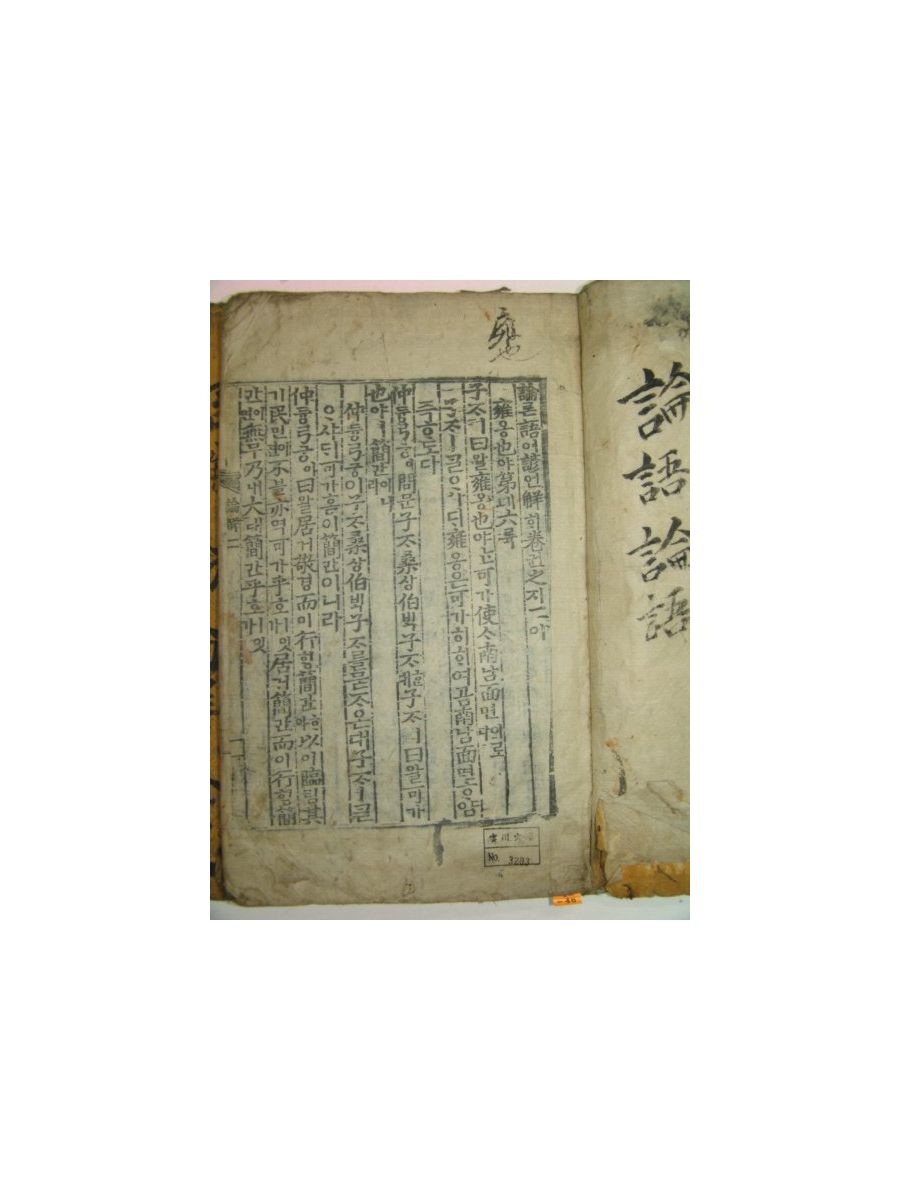 論語論語
雍也
論론語어諺언解ᄒᆡ卷권之지二이
雍옹也야第뎨六륙
子ᄌᆞㅣ曰왈雍옹也야ᄂᆞᆫ可가使ᄉᆞ南남面면이로다
子ᄌᆞㅣᄀᆞᆯᄋᆞ샤ᄃᆡ雍옹은可가히ᄒᆞ여곰南남面면ᄒᆞ얌
즉ᄒᆞ도다
仲듕弓궁이問문子ᄌᆞ桑상伯ᄇᆡᆨ子ᄌᆞᄒᆞᆫ대子ᄌᆞㅣ曰왈可가
也야ㅣ簡간이니라
仲듕弓궁이子ᄌᆞ桑상伯ᄇᆡᆨ子ᄌᆞ를묻ᄌᆞ온대子ᄌᆞㅣᄀᆞᆯ
ᄋᆞ샤ᄃᆡ可가홈이簡간이니라
仲듕弓궁이曰왈居거敬경而이行ᄒᆡᆼ簡간ᄒᆞ야以이臨림其
기民민이면不블亦역可가乎호ㅣ잇가居거簡간而이行ᄒᆡᆼ簡
간이면無무乃내大대簡간乎호ㅣ잇가
論解二
No. 3203